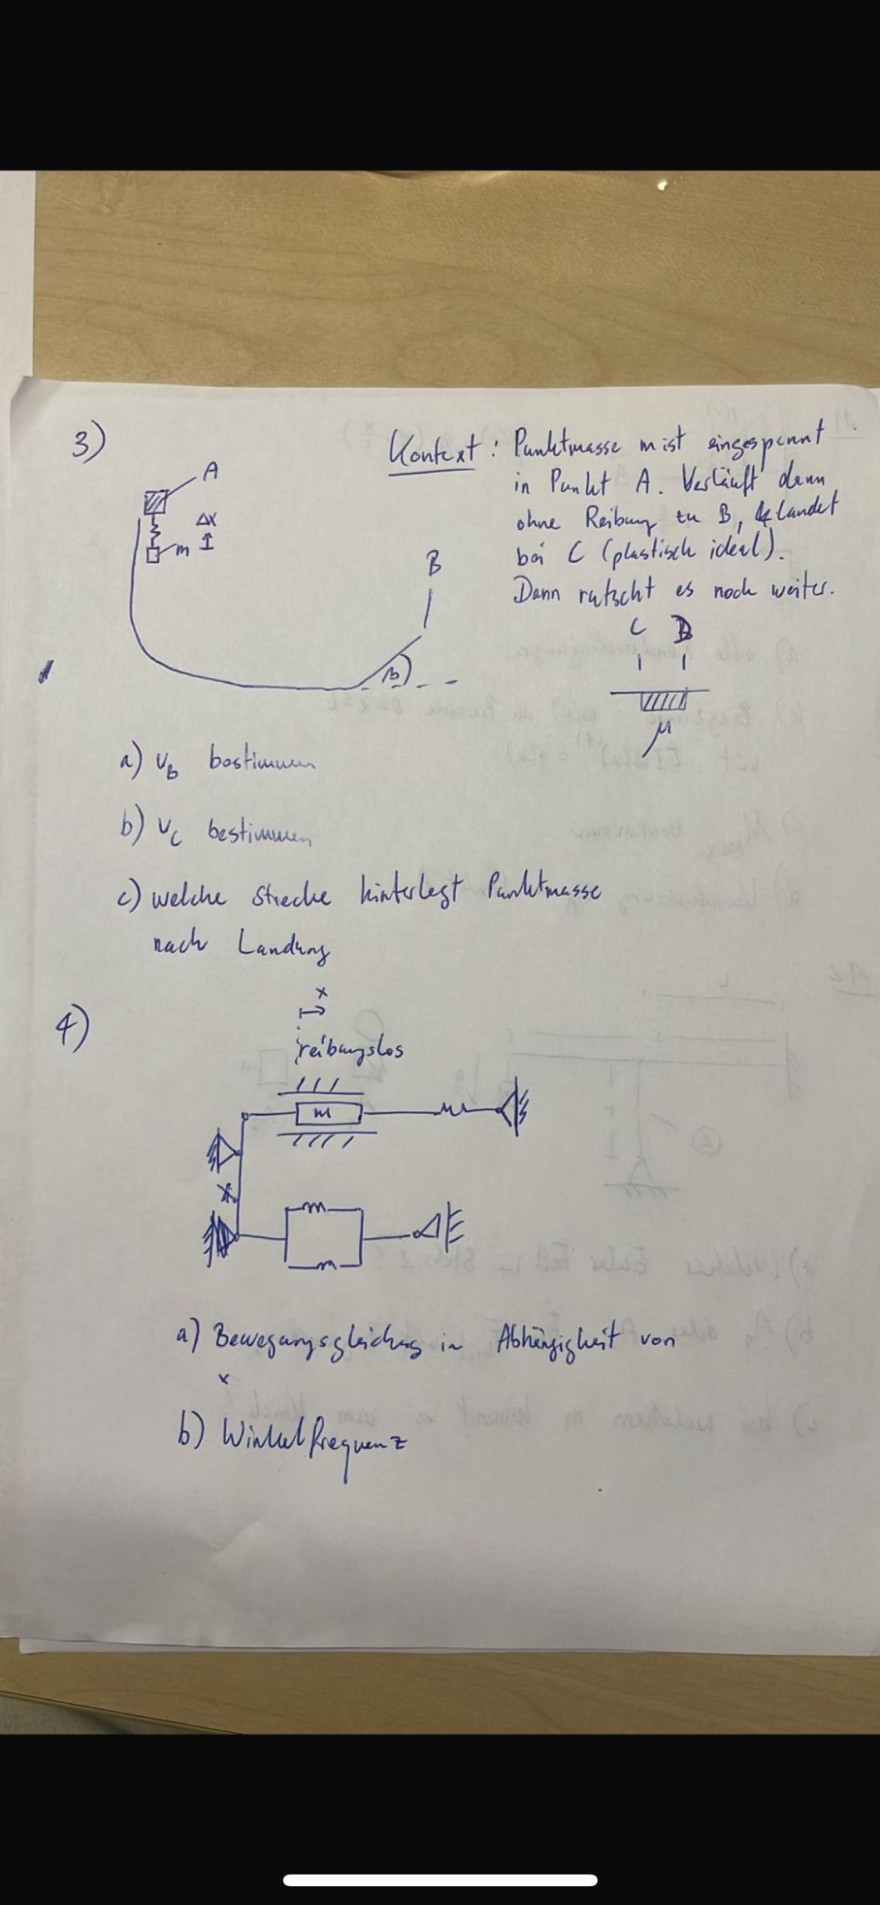 3)
A
Δx
m
B
β
Kontext: Punktmasse m ist eingespannt
in Punkt A. Verläuft dann
ohne Reibung zu B, & landet
bei C (plastisch ideal).
Dann rutscht es noch weiter.
C D
μ
a) v_B bestimmen
b) v_C bestimmen
c) welche Strecke hinterlegt Punktmasse
nach Landung
4)
x
reibungslos
m
a) Bewegungsgleichung in Abhängigkeit von
x
b) Winkelfrequenz